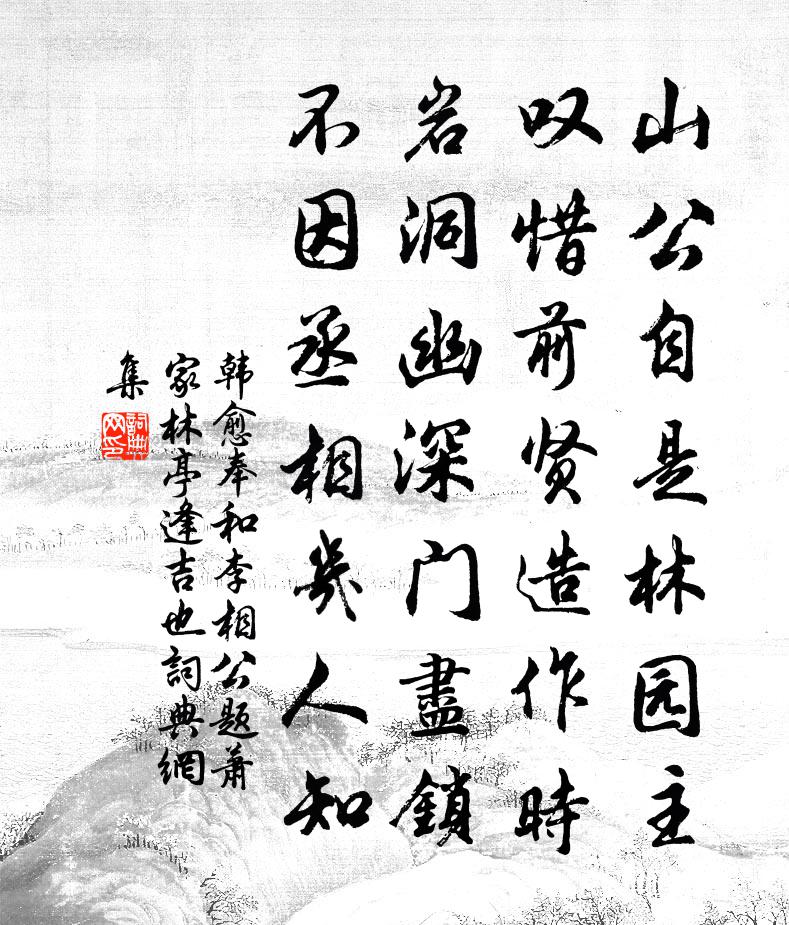 山公自是林园主
叹惜前贤造作時
岩洞幽深门盡鎖
不因丞相幾人知
韩愈奉和李相公题萧
家林亭逢吉也詞典網
集
詞典
网印